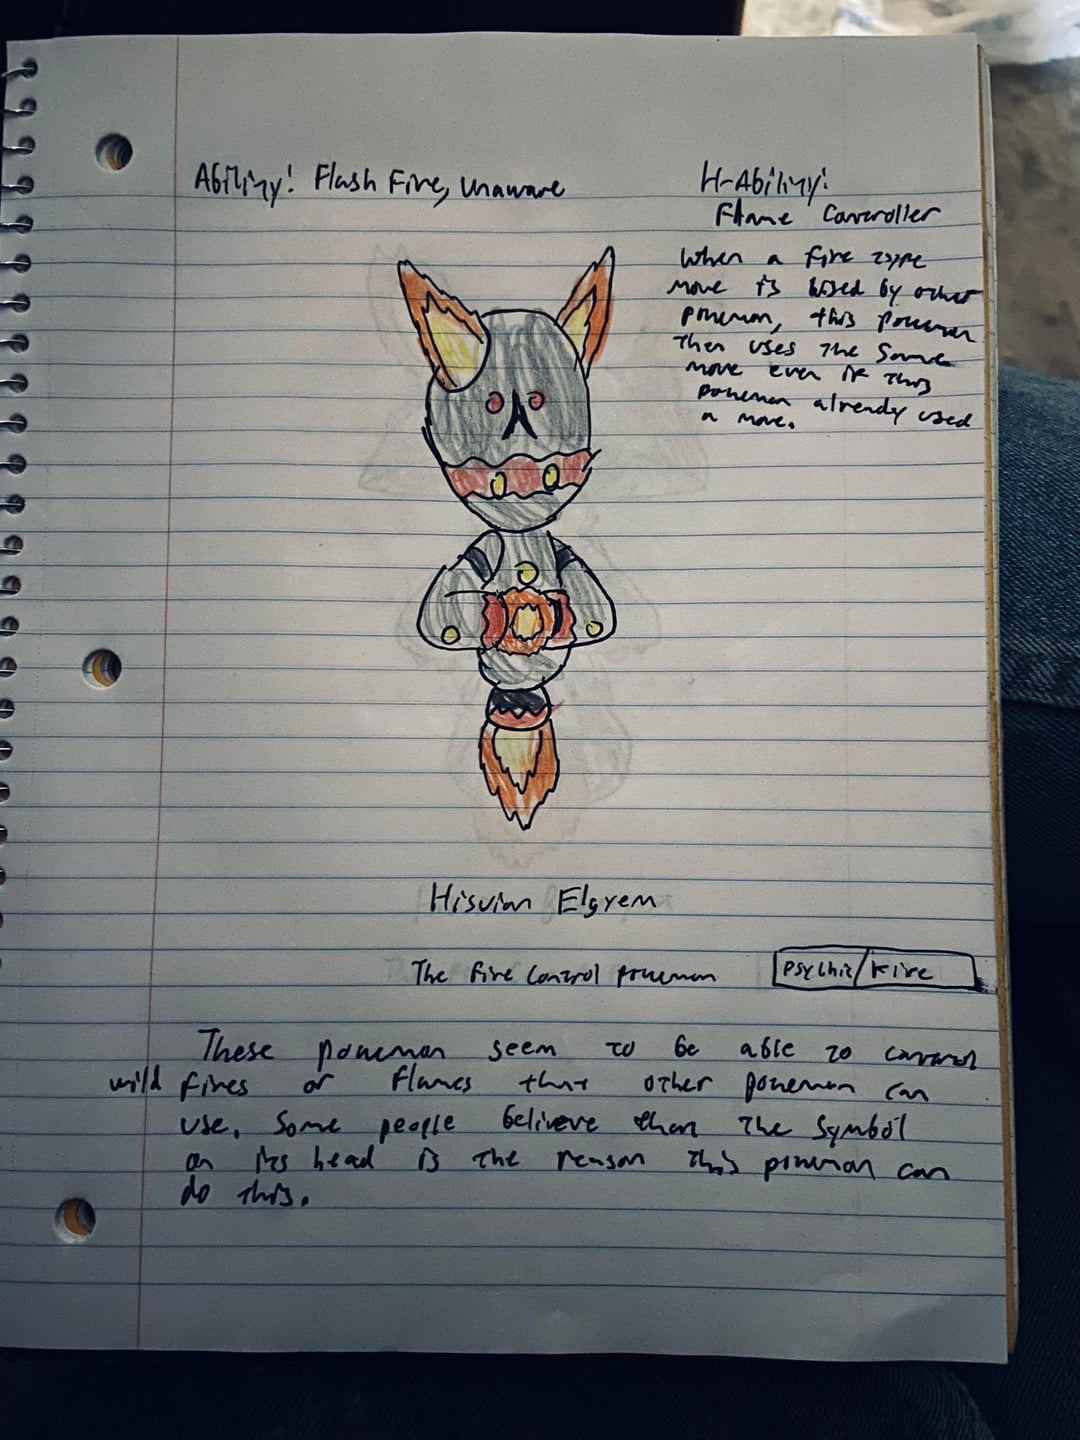 Ability: Flash Fire, Unaware
H-Ability:
Flame Controller
When a fire type
move is used by other
pokemon, this pokemon
then uses the same
move even if this
pokemon already used
a move.
Hisuian Elgyem
The Fire Control pokemon
Psychic/Fire
These pokemon seem to be able to control
wild fires or flames that other pokemon can
use. Some people beliveve than the symbol
on its head is the reason this pokemon can
do this.